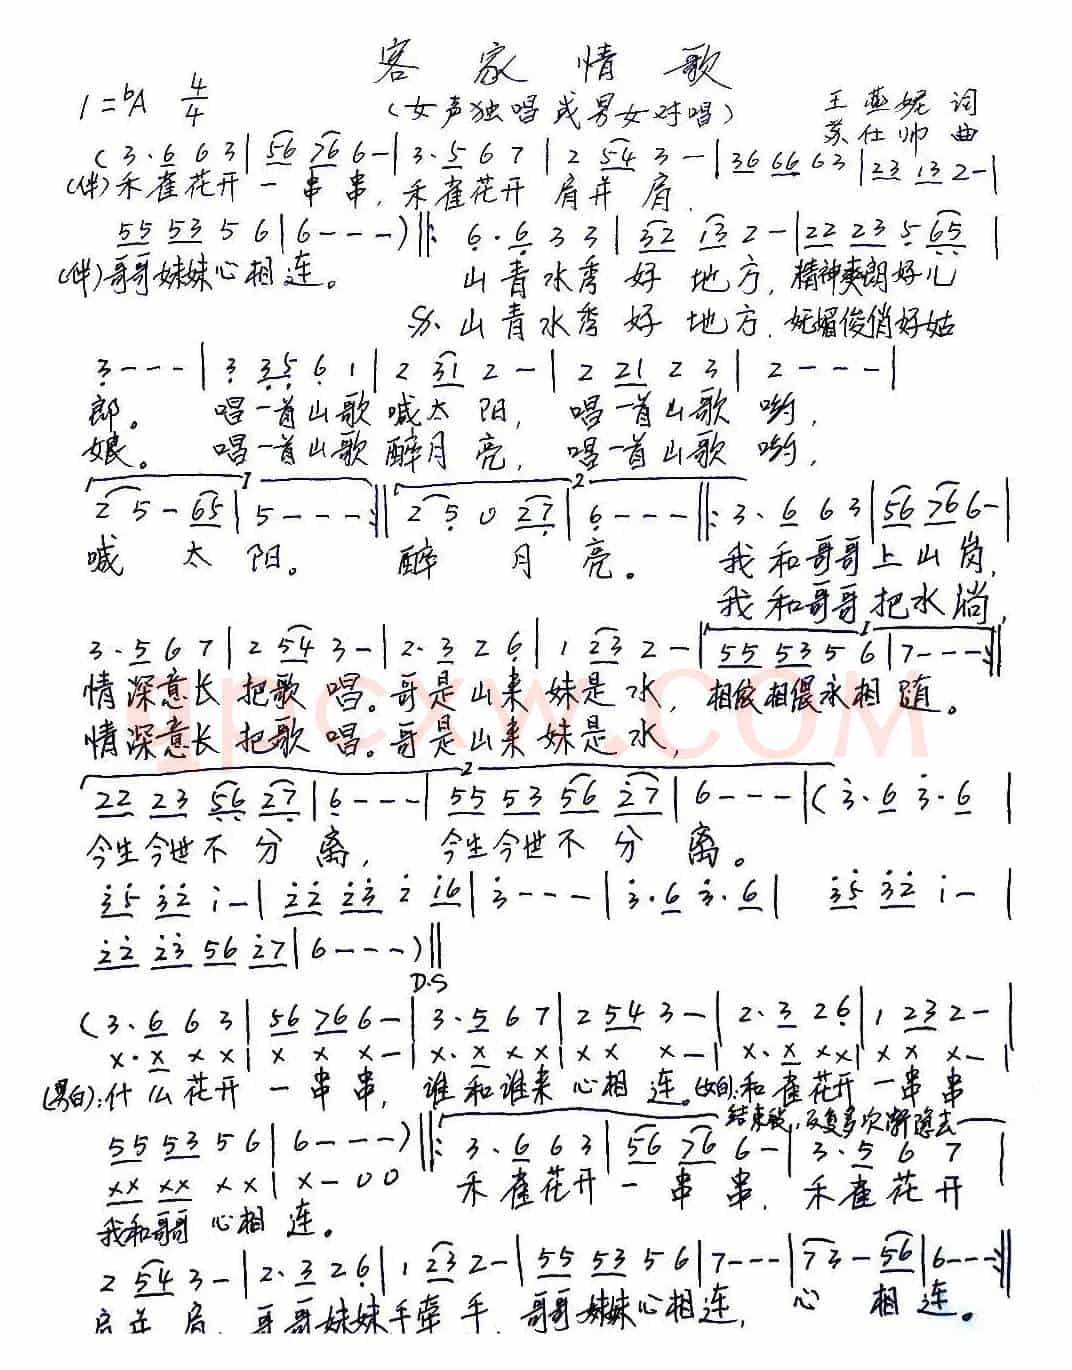 客家情歌
1=♭A 4/4
(女声独唱或男女对唱)
王燕妮 词
苏仕帅 曲
(3·6 6 3|56 766-|3·5 6 7|2 54 3-|36 66 63|23 13 2-|
(伴)禾雀花开一串串,禾雀花开肩并肩.
55 53 5 6|6---)‖: 6·6 3 3|32 13 2-|22 23 5 65|
(伴)哥哥妹妹心相连。 山青水秀好地方,精神爽朗好儿
𝄋.山青水秀好地方.妩媚俊俏好姑
3---|3 35 6 1|2 31 2-|2 21 2 3|2---|
郎。 唱一首山歌喊太阳, 唱一首山歌哟,
娘。 唱一首山歌醉月亮, 唱一首山歌哟,
1 2
2 5-65|5---:‖2 5 0 27|6---‖: 3·6 6 3|56 766-|
喊太阳。 醉月亮。 我和哥哥上山岗,
我和哥哥把水淌,
1
3·5 6 7|2 54 3-|2·3 2 6|1 23 2-|55 53 5 6|7---:‖
情深意长把歌唱。哥是山来妹是水,相依相偎永相随。
情深意长把歌唱。哥是山来妹是水,
2
22 23 56 27|6---|55 53 56 27|6---|(3·6 3·6|
今生今世不分离, 今生今世不分离。
15 32 1-|22 23 2 16|3---|3·6 3·6| 35 32 1-|
22 23 56 27|6---)‖
D.S
(3·6 6 3|56 766-|3·5 6 7|2 54 3-|2·3 26|1 232-|
x·x x x|x x x-|x·x x x|x x x-|x·x xx|x x x-|
(男白):什么花开一串串,谁和谁来心相连。(女白):和雀花开一串串
结束段,反复多次渐隐去
55 53 5 6|6---)‖: 3·6 6 3|56 76 6-|3·5 6 7|
xx xx xx|x-00 禾雀花开一串串.禾雀花开
我和哥哥心相连。
2 54 3-|2·3 26|1 23 2-|55 53 5 6|7---|73-56|6---:‖
肩并肩.哥哥妹妹手牵手.哥哥妹妹心相连,心相连。